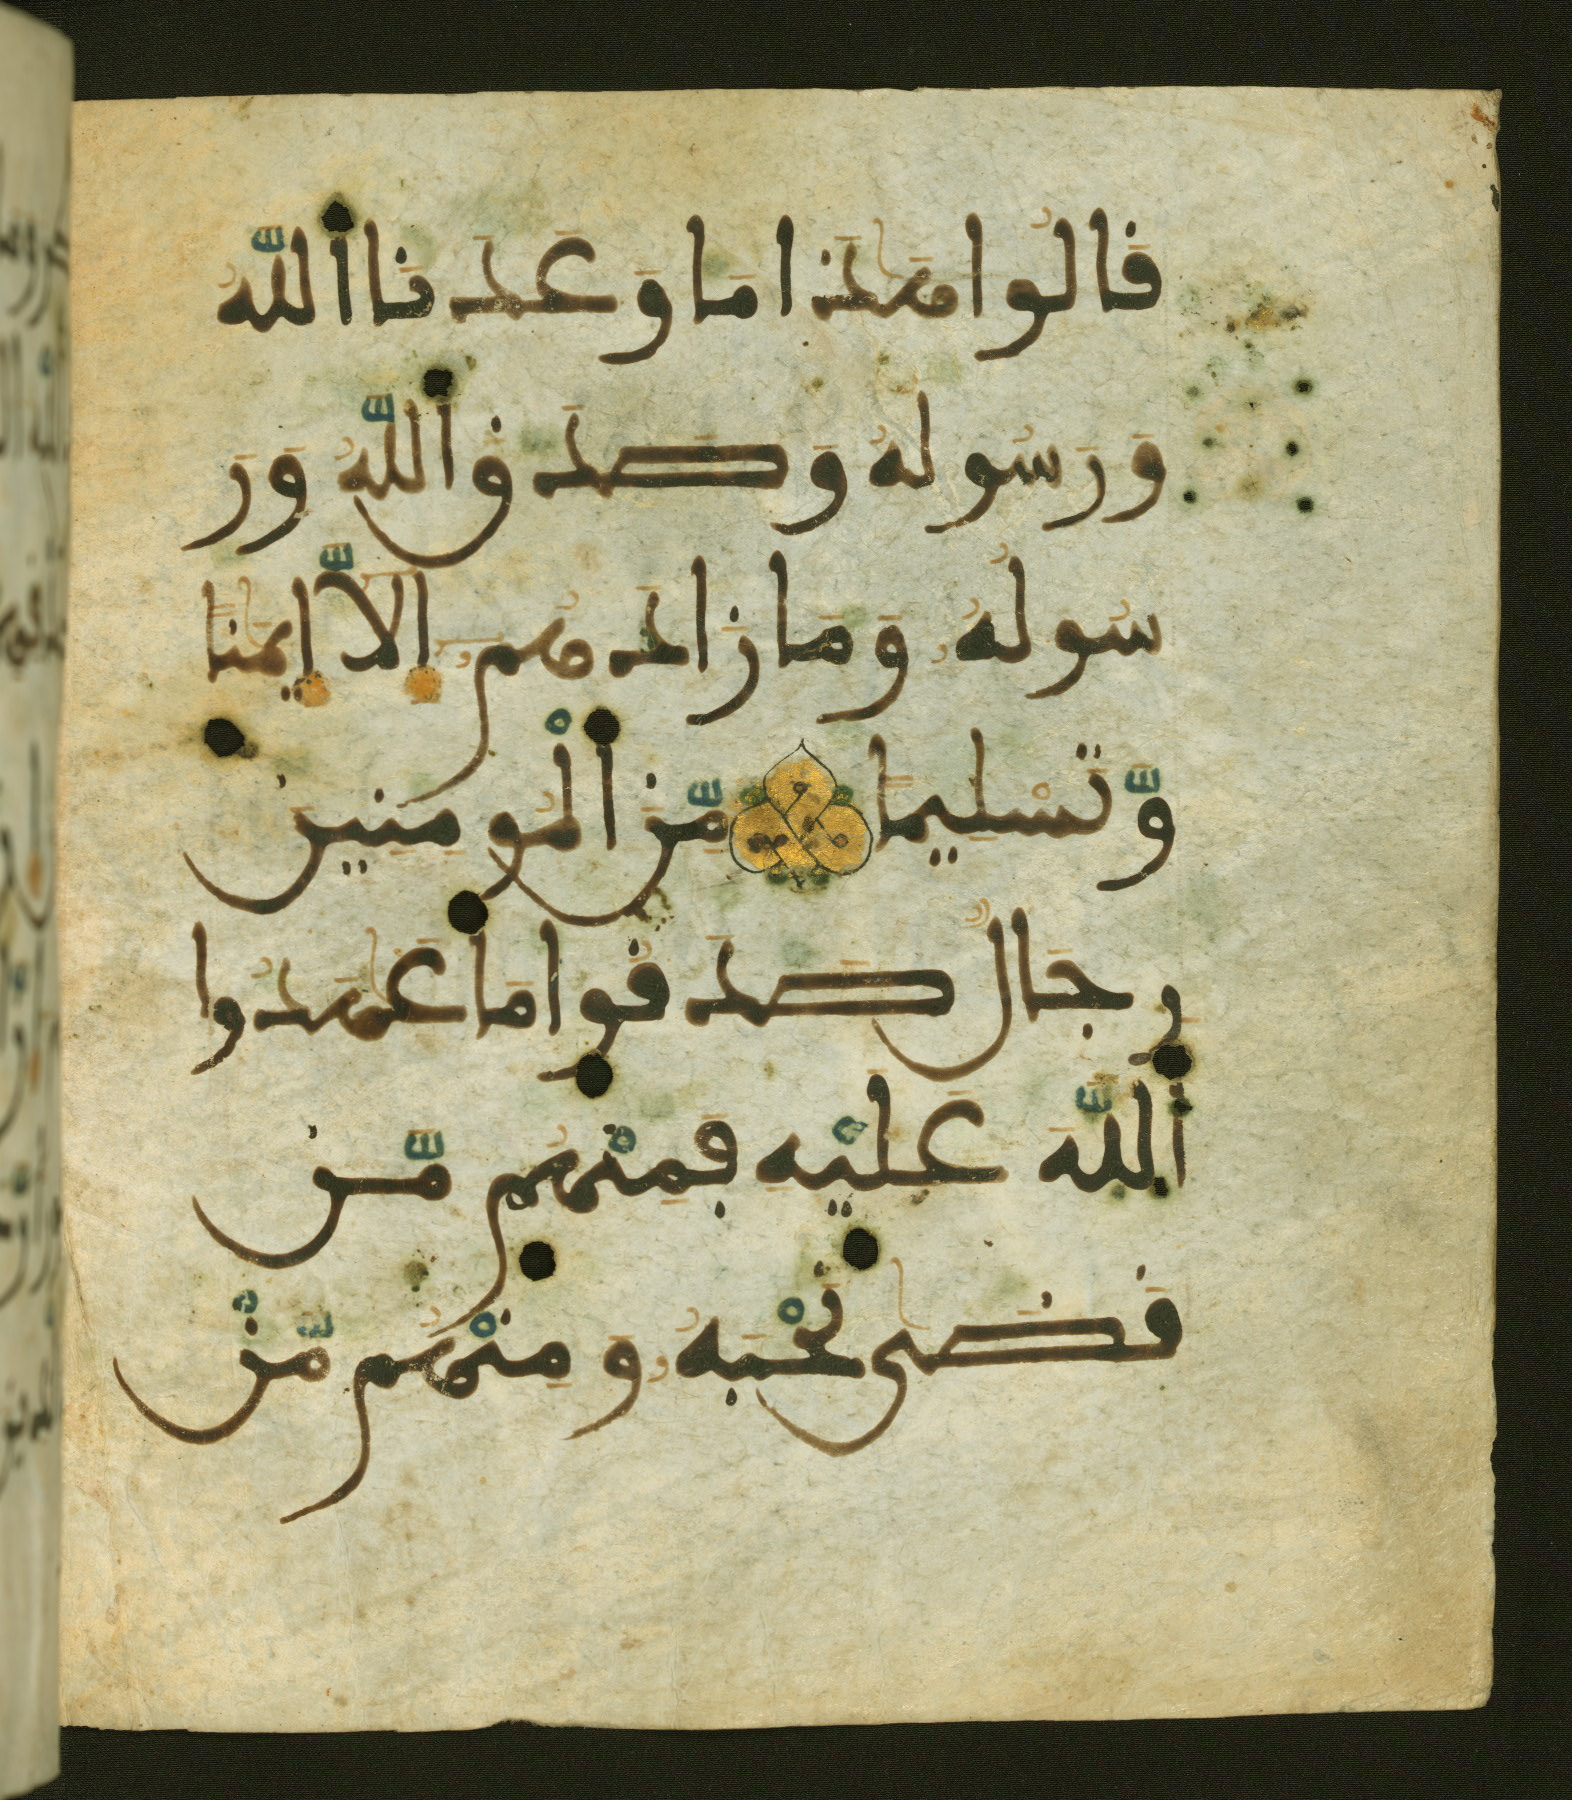 قَالُوا هَٰذَا مَا وَعَدَنَا اَللَّهُ
وَرَسُولُهُ وَصَدَقَ اَللَّهُ وَرَ
سُولُهُ وَمَا زَادَهُمُ إِلَّا إِيمَٰنًا
وَّتَسْلِيمًا مِّنَ اَلْمُومِنِينَ
رِجَالٌ صَدَقُوا مَا عَٰهَدُوا
اَللَّهَ عَلَيْهِ فَمِنْهُم مَّن
قَضَىٰ نَحْبَهُ وَمِنْهُم مَّنْ